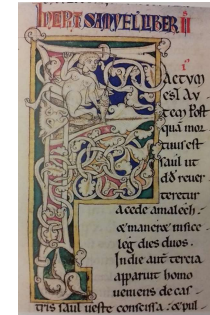 INCIPIT SAMVEL LIBER II
FACTVM
EST AV
TEM Post
quā mor
tuus est
saul ut
dd reuer
teretur
a cede amalech
& maneret in sice
leg dies duos.
In die aut tercia
apparuit homo
ueniens de cas
tris saul ueste conscissa. & pul